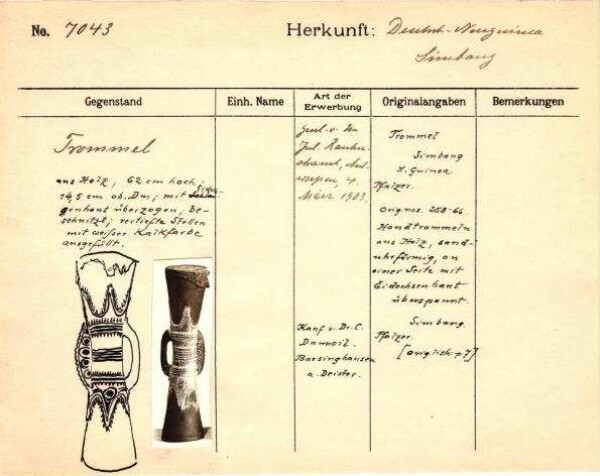 No. 7043 Herkunft: Deutsch-Neuguinea
Simbang
Gegenstand Einh. Name Art der Erwerbung Originalangaben Bemerkungen
Trommel
aus Holz, 62 cm hoch;
14,5 cm ob. Dm; mit Eidechs-
genhaut überzogen; be-
schnitzt; vertiefte Stellen
mit weißer Kalkfarbe
ausgefüllt.
März 1903.
Kauf v. Dr. C.
Barsinghausen
a. Deister.
Trommel
Simbang
N. Guinea
Pfalzer.
Orig.nos. 258-66
Handtrommeln
aus Holz, sand-
uhrförmig, an
einer Seite mit
Eidechsenhaut
überspannt.
Simbang.
Pfalzer.